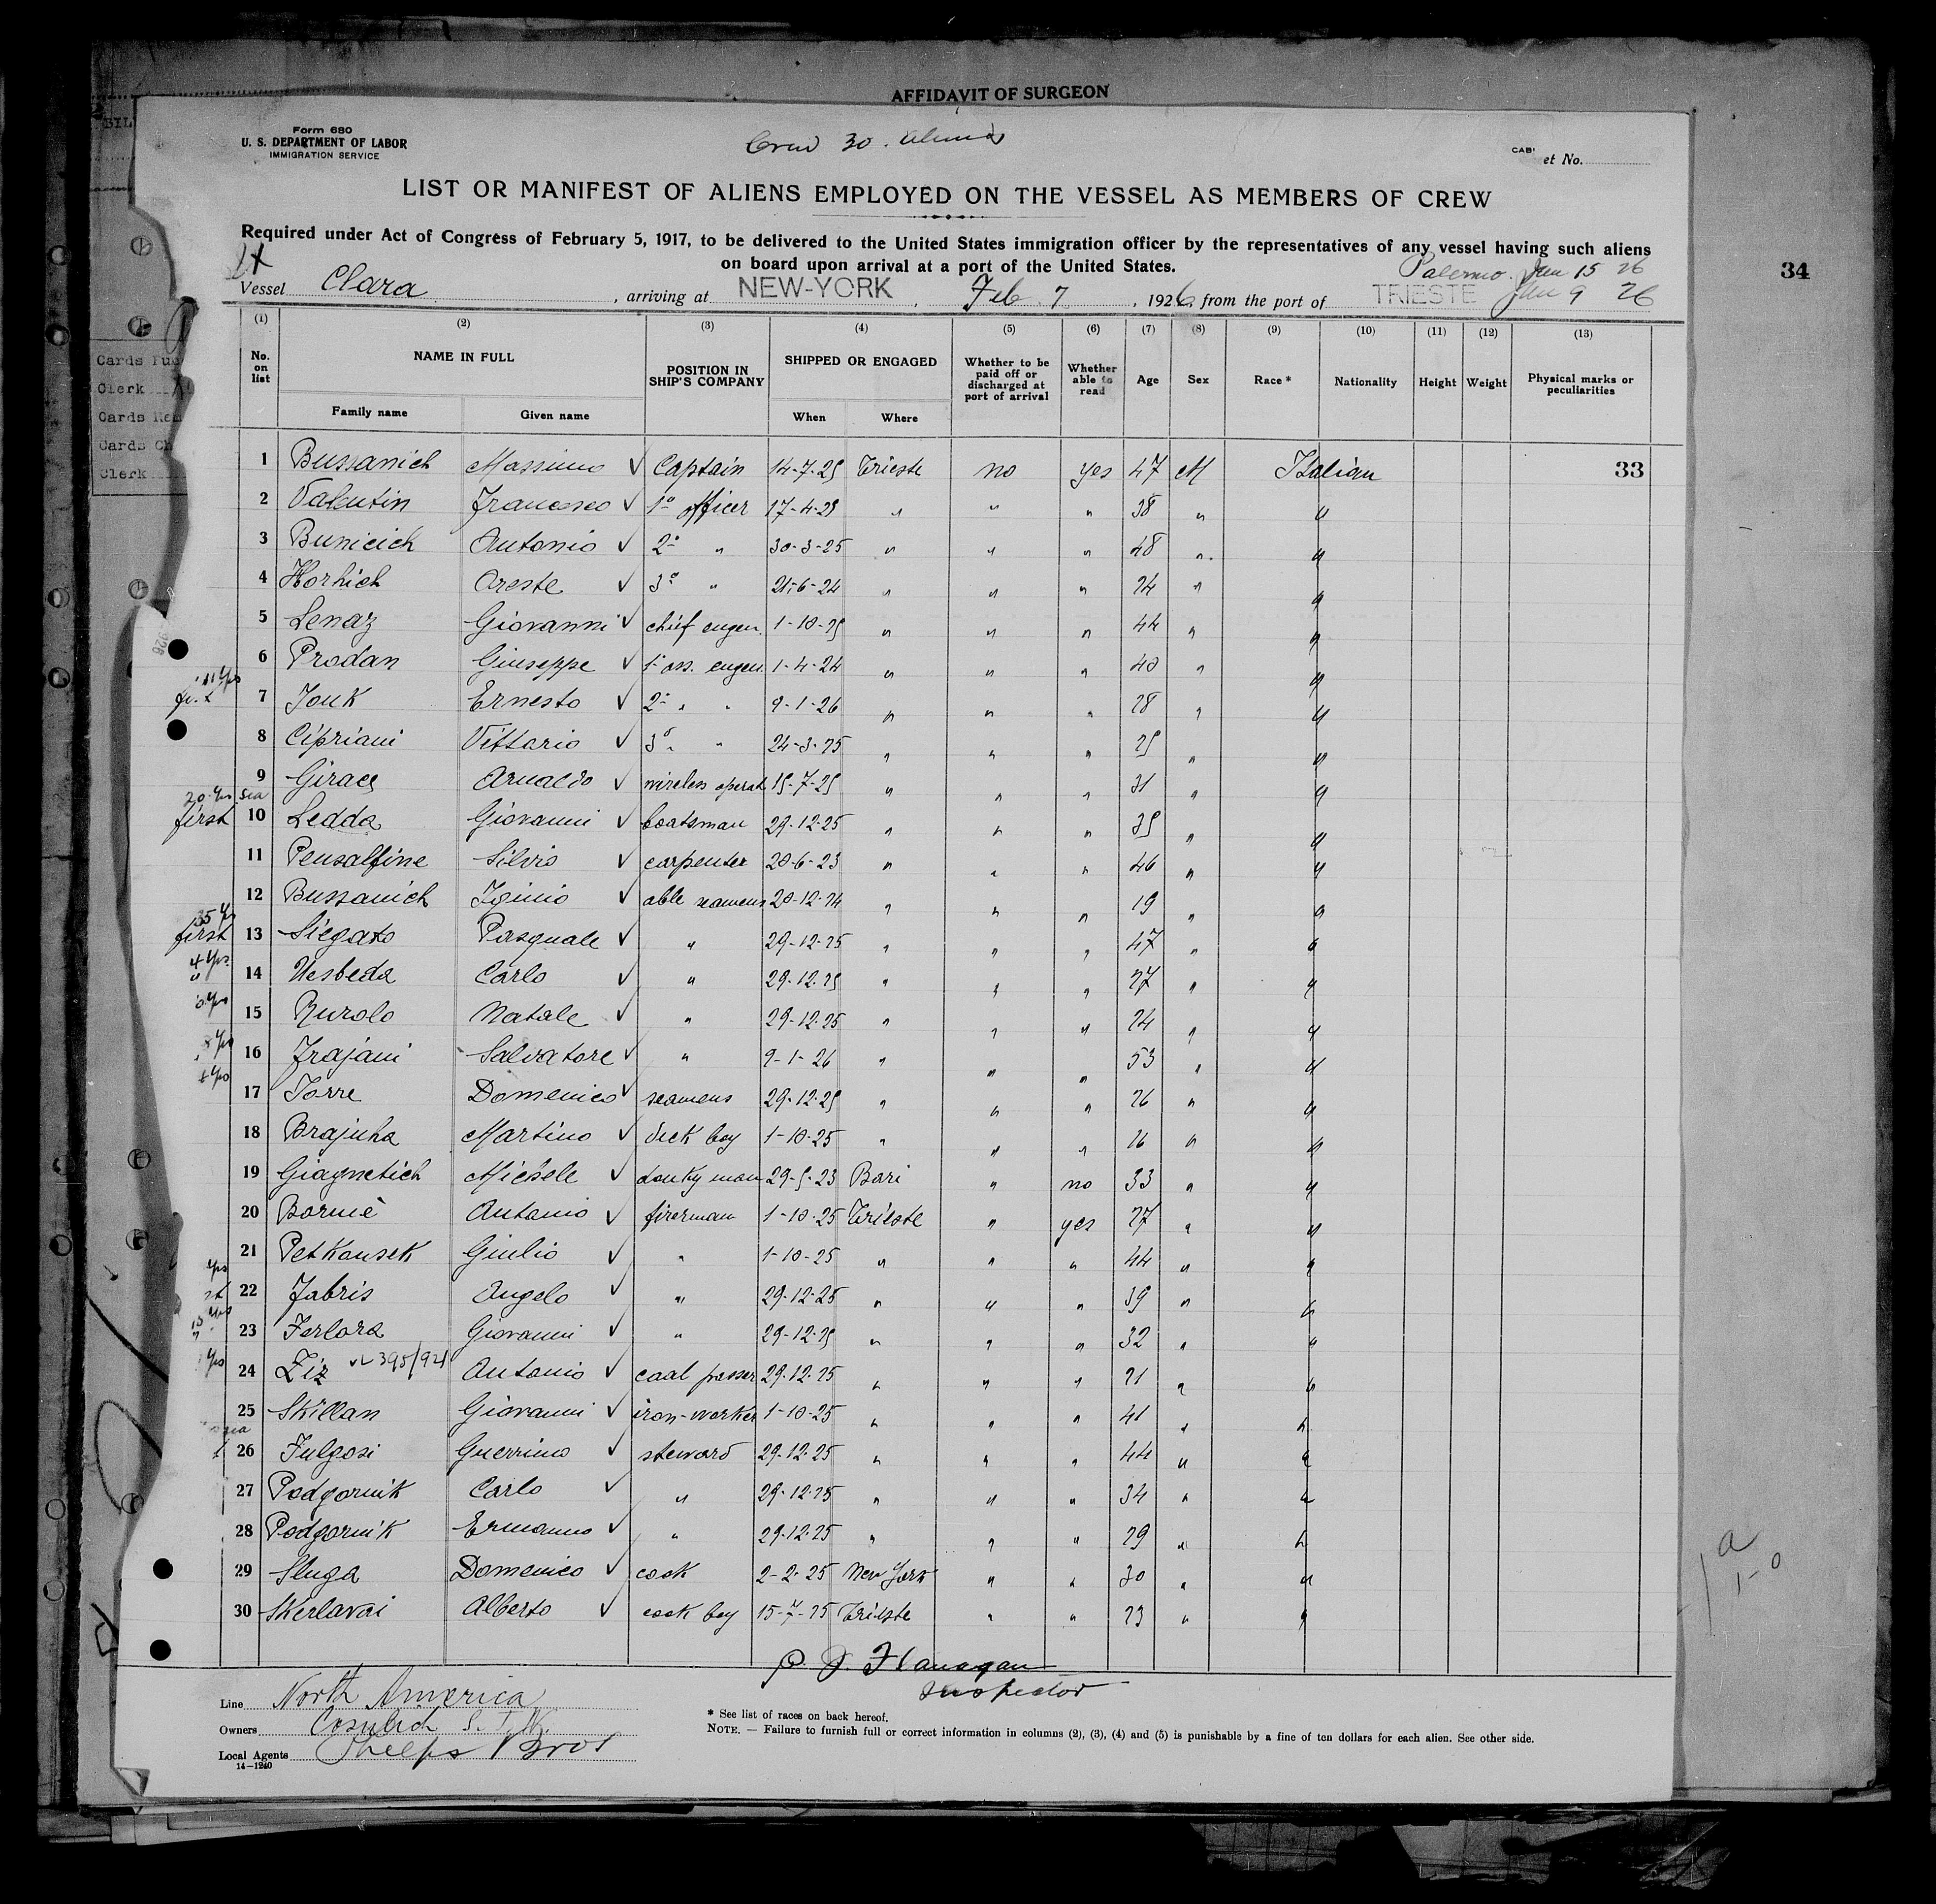 AFFIDAVIT OF SURGEON
Form 680
U. S. DEPARTMENT OF LABOR
IMMIGRATION SERVICE
Crew 30. Aliens
et No.
LIST OR MANIFEST OF ALIENS EMPLOYED ON THE VESSEL AS MEMBERS OF CREW
Required under Act of Congress of February 5, 1917, to be delivered to the United States immigration officer by the representatives of any vessel having such aliens
on board upon arrival at a port of the United States.
Palermo Jan 15 26
34
Vessel Clara, arriving at NEW-YORK, Feb. 7, 1926, from the port of TRIESTE Jan 9 26
(1) (2) (3) (4) (5) (6) (7) (8) (9) (10) (11) (12) (13)
No. on list NAME IN FULL POSITION IN SHIP'S COMPANY SHIPPED OR ENGAGED Whether to be paid off or discharged at port of arrival Whether able to read Age Sex Race * Nationality Height Weight Physical marks or peculiarities
Family name Given name When Where
Cards
Clerk
Cards
Cards
Clerk
1 Bussanich Massimo ✓ Captain 14-7-25 Trieste no yes 47 M Italian 33
2 Valentin Francesco ✓ 1° officer 17-4-25 " " " 38 " "
3 Bunicich Antonio ✓ 2° " 30-3-25 " " " 48 " "
4 Horhich Oreste ✓ 3° " 21-6-24 " " " 24 " "
5 Lenaz Giovanni ✓ chief engen. 1-10-25 " " " 44 " "
6 Prodan Giuseppe ✓ 1° ass. engen. 1-4-24 " " " 40 " "
7 Jouk Ernesto ✓ 2° " " 9-1-26 " " " 28 " "
8 Cipriani Vittorio ✓ 3° " " 24-3-25 " " " 25 " "
9 Girace Arnaldo ✓ wireless operat 15-7-25 " " " 31 " "
20 yrs sea
first 10 Ledda Giovanni ✓ boatsman 29-12-25 " " " 35 " "
11 Pensalfine Silvio ✓ carpenter 20-6-23 " " " 46 " "
12 Bussanich Iginio ✓ able seamens 20-12-24 " " " 19 " "
35 yrs
first 13 Siegato Pasquale ✓ " 29-12-25 " " " 47 " "
4 yrs
" 14 Uesbeda Carlo ✓ " 29-12-25 " " " 27 " "
15 Rurolo Natale ✓ " 29-12-25 " " " 24 " "
16 Trajani Salvatore ✓ " 9-1-26 " " " 53 " "
17 Torre Domenico ✓ seamens 29-12-25 " " " 26 " "
18 Brajuha Martino ✓ deck boy 1-10-25 " " " 16 " "
19 Giagnetich Michele ✓ donky man 29-5-23 Bari " no 33 " "
20 Bormè Antonio ✓ firerman 1-10-25 Trieste " yes 27 " "
21 Petkousek Giulio ✓ " 1-10-25 " " " 44 " "
22 Fabris Angelo ✓ " 29-12-25 " " " 39 " "
23 Ferlora Giovanni ✓ " 29-12-25 " " " 32 " "
24 Ziz 395/921 Antonio ✓ coal passer 29-12-25 " " " 21 " "
25 Skillan Giovanni ✓ iron-worker 1-10-25 " " " 41 " "
26 Fulgosi Guerrino ✓ steward 29-12-25 " " " 44 " "
27 Podgornik Carlo ✓ " 29-12-25 " " " 34 " "
28 Podgornik Ermanno ✓ " 29-12-25 " " " 29 " "
29 Sluga Domenico ✓ cook 2-2-25 New York " " 30 " "
30 Skerlavai Alberto ✓ cook boy 15-7-25 Trieste " " 23 " "
P. J. Flanagan
Inspector
Line North America
Owners Cosulich S. T. N.
Local Agents Phelps Bros
14—1240
* See list of races on back hereof.
NOTE. — Failure to furnish full or correct information in columns (2), (3), (4) and (5) is punishable by a fine of ten dollars for each alien. See other side.